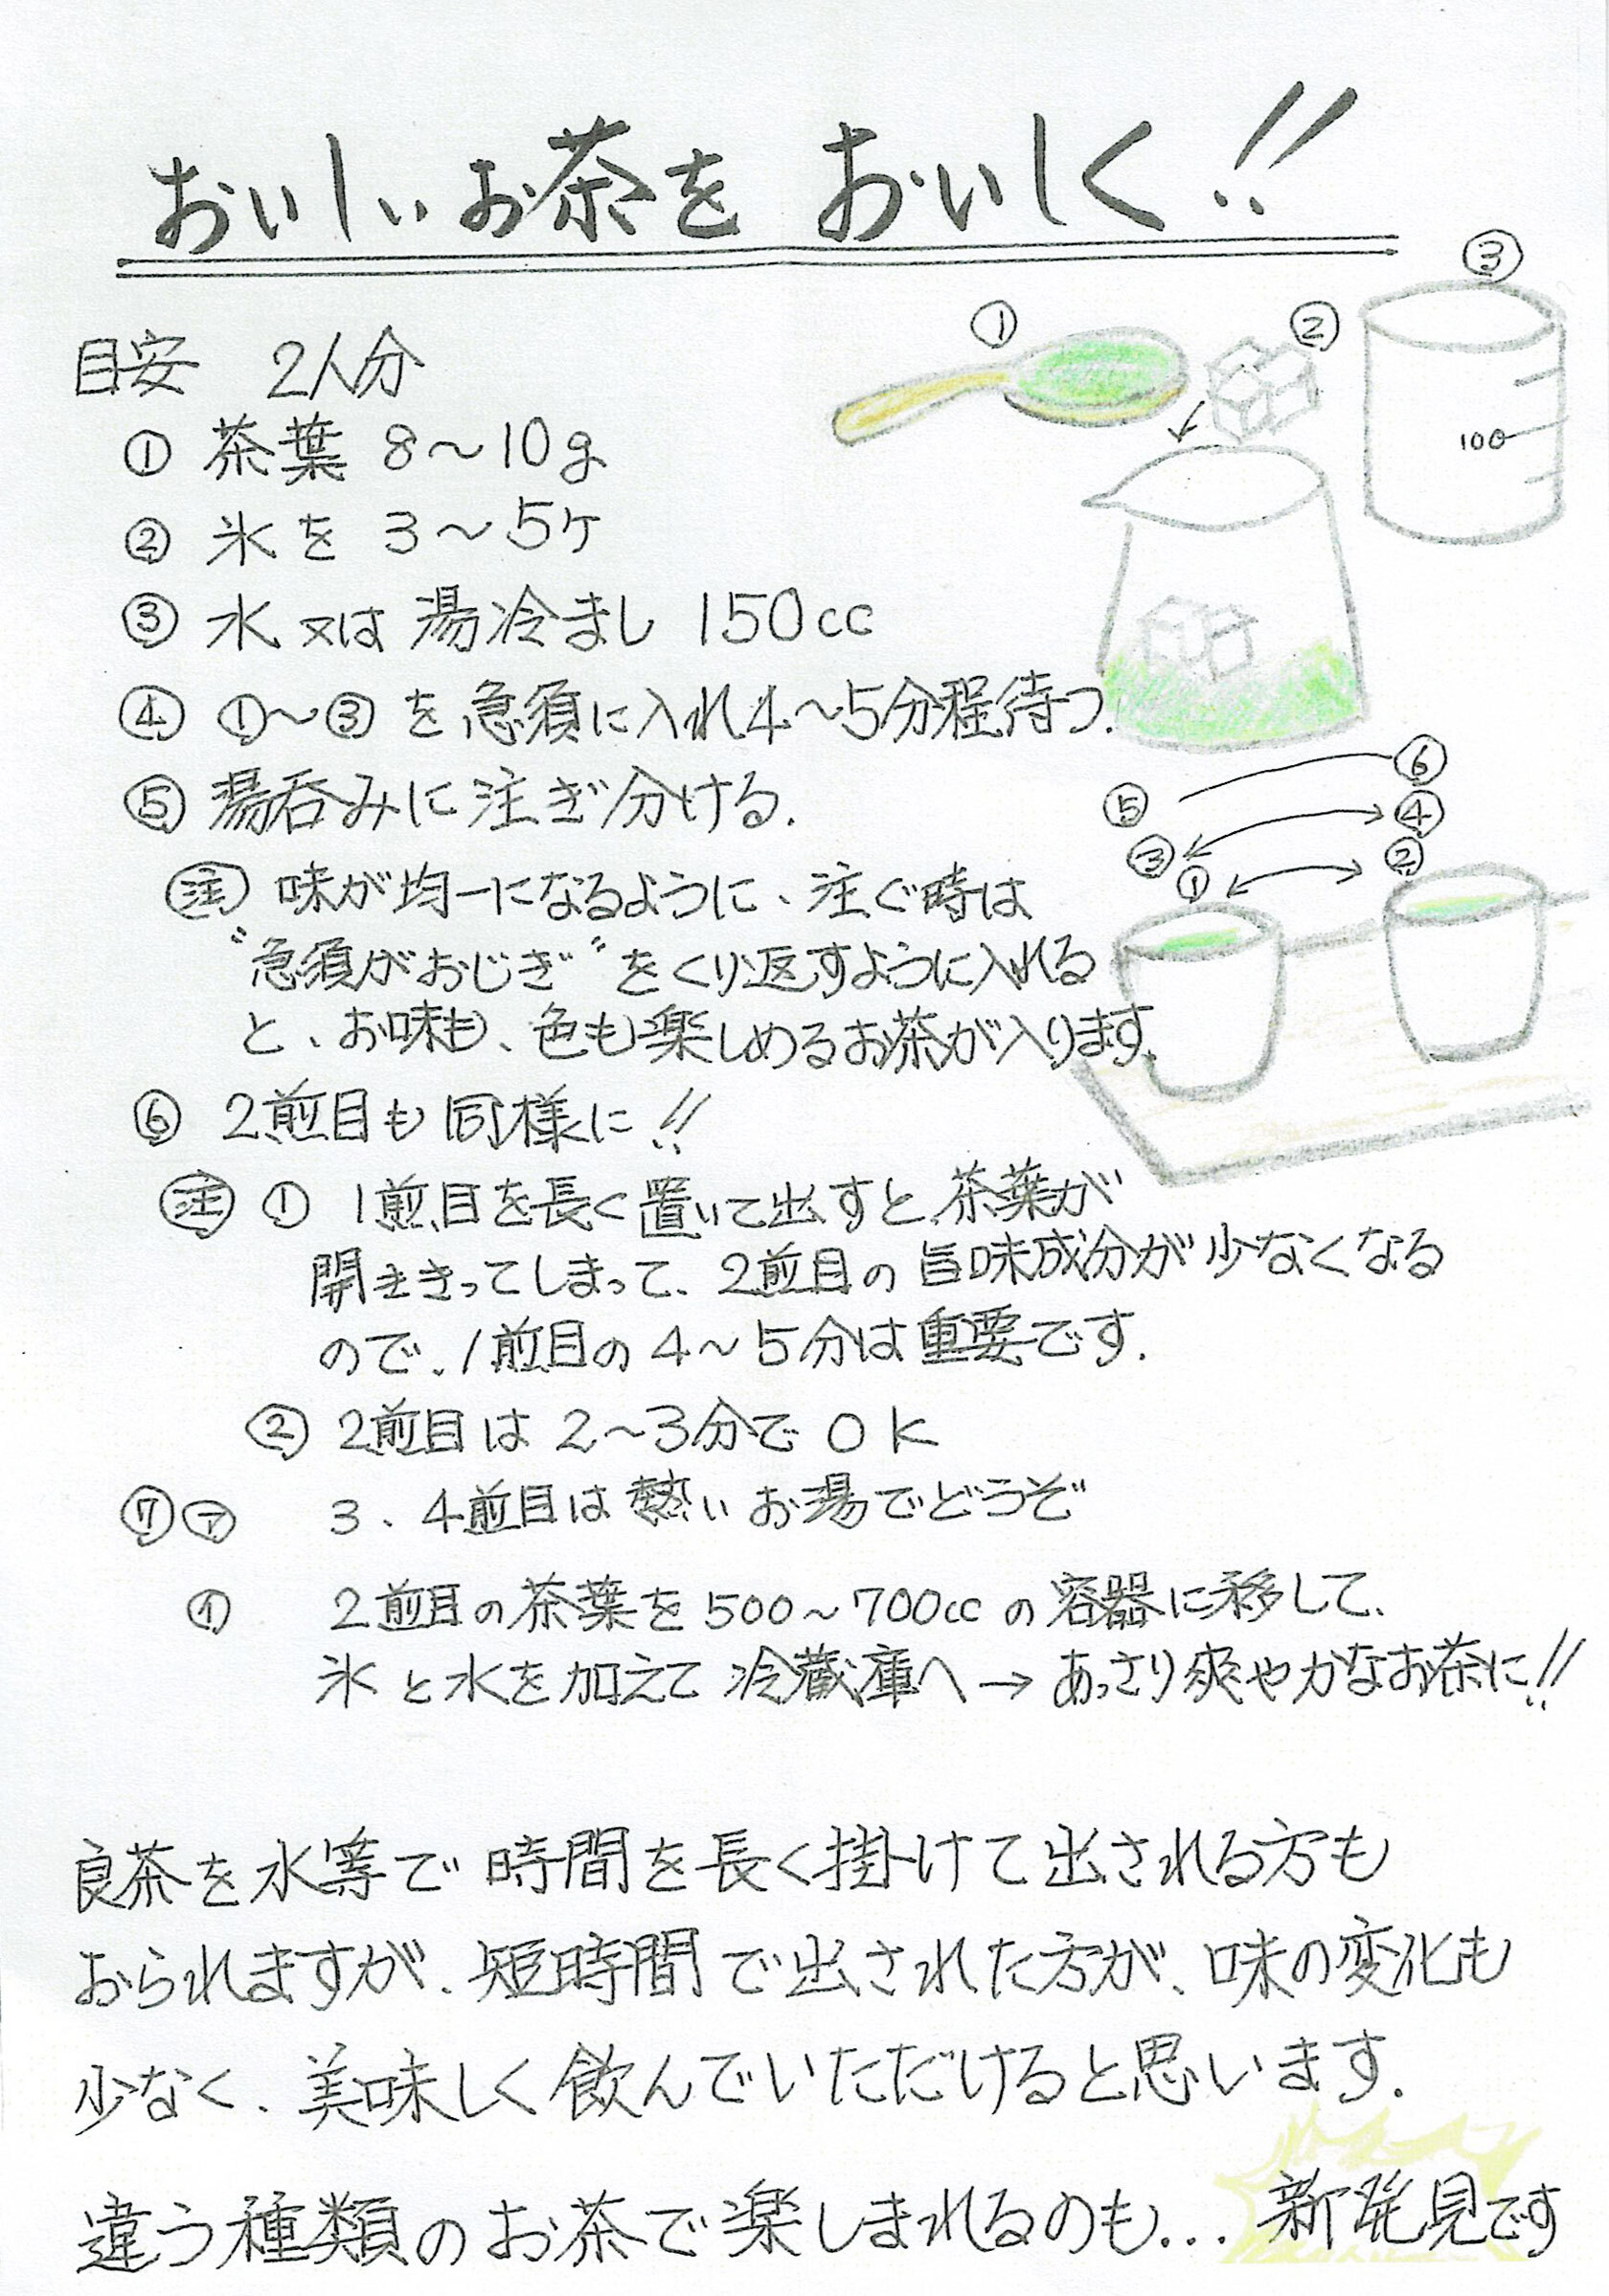 おいしいお茶を おいしく!!
目安 2人分
① 茶葉 8〜10g
② 氷を 3〜5ケ
③ 水 又は 湯冷まし 150cc
④ ①〜③ を 急須に入れ4〜5分程待つ.
⑤ 湯呑みに注ぎ分ける.
㊟ 味が均一になるように、注ぐ時は
“急須がおじぎ”をくり返すように入れる
と、お味も、色も楽しめるお茶が入ります.
⑥ 2煎目も同様に!!
㊟ ① 1煎目を長く置いて出すと、茶葉が
開ききってしまって、2煎目の旨味成分が少なくなる
ので、1煎目の4〜5分は重要です.
② 2煎目は 2〜3分で OK
⑦ ㋐ 3、4煎目は熱いお湯でどうぞ
㋑ 2煎目の茶葉を500〜700ccの容器に移して、
氷と水を加えて冷蔵庫へ→あっさり爽やかなお茶に!!
良茶を水等で時間を長く掛けて出される方も
おられますが、短時間で出された方が、味の変化も
少なく、美味しく飲んでいただけると思います.
違う種類のお茶で楽しまれるのも... 新発見です
①
②
③
100
⑥
⑤
④
③
②
①